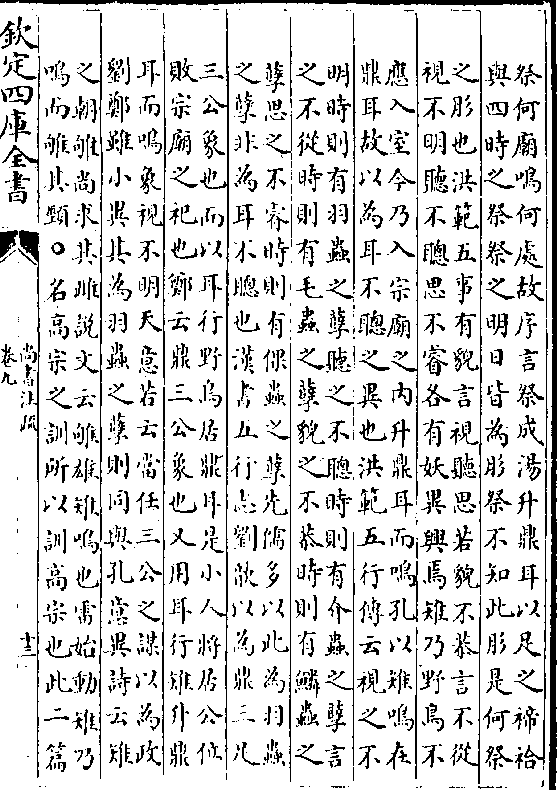 祭何廟鳴何處故序言祭成湯升鼎耳以足之禘祫
與四時之祭祭之明日皆為肜祭不知此肜是何祭
之肜也洪範五事有貌言視聽思若貌不恭言不從
視不明聽不聰思不睿各有妖異興焉雉乃野鳥不
應入室今乃入宗廟之内升鼎耳而鳴孔以雉鳴在
鼎耳故以為耳不聰之異也洪範五行傳云視之不
明時則有羽蟲之孽聽之不聰時則有介蟲之孽言
之不從時則有毛蟲之孽貌之不恭時則有鱗蟲之
孽思之不睿時則有倮蟲之孽先儒多以此為羽蟲
之孽非為耳不聰也漢書五行志劉歆以為鼎三足
三公象也而以耳行野鳥居鼎耳是小人將居公位
敗宗廟之祀也鄭云鼎三公象也又用耳行雉升鼎
耳而鳴象視不明天意若云當任三公之謀以為政
劉鄭雖小異其為羽蟲之孽則同與孔意異詩云雉
之朝雊尚求其雌說文云雊雄雉鳴也雷始動雉乃
鳴而雊其頸○名高宗之訓所以訓高宗也此二篇
欽定四庫全書
尚書注疏
卷九
十三